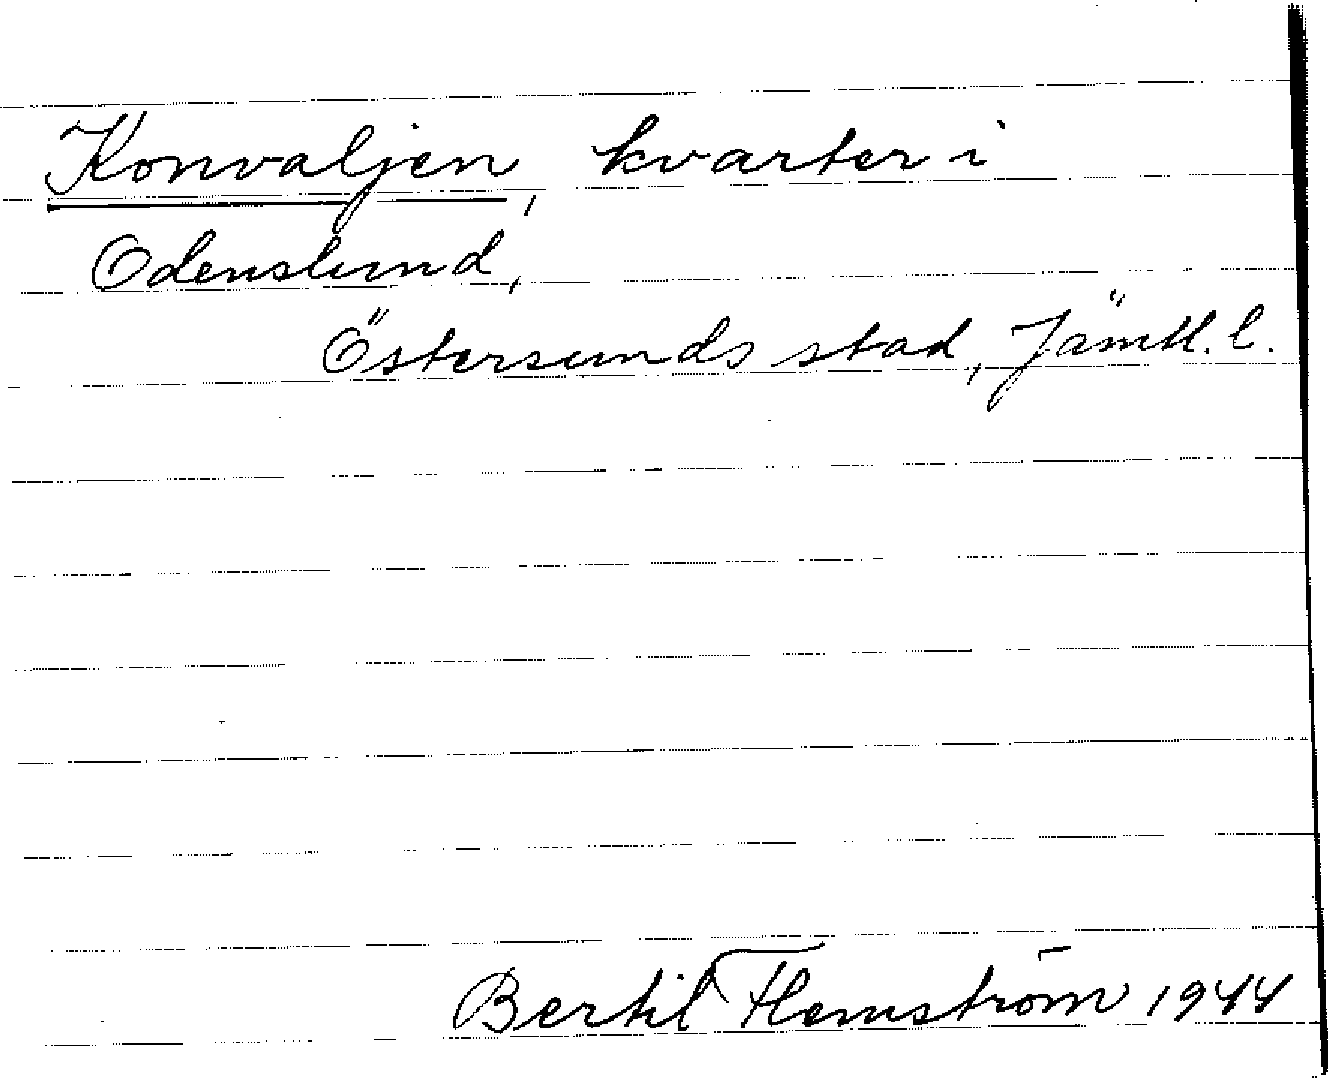 Konvaljen, kvarter i
Odenslund,
Östersunds stad, Jämtl. l.
Bertil Flemström 1944